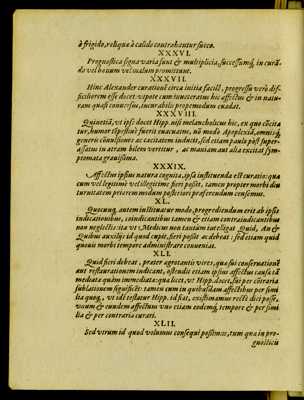 à frigido, reliquæ à calido contrahantur succo.
XXXVI.
Prognostica signa varia sunt & multiplicia, successumq́; in curã-
da vel bonum vel malum promittunt.
XXXVII.
Hinc Alexander curationē circa initia facilē, progressu verò dif-
ficiliorem esse docet: nempe cum inueteratus hic affectus & in natu-
ram quasi conuersus, incurabilis propemodum euadat.
XXXVIII.
Quinetiā, vt ipse docet Hipp. nisi melancholicus hic, ex quo cõcita
tur, humor tẽpestiuè fuerit euacuatus, nõ modò Apoplexiā, omnisq́;
generis conuulsiones ac cæcitatem inducit, sed etiam paulò pòst super-
assatus in atram bilem vertitur, ac maniam aut alia excitat sym-
ptomata grauissima.
XXXIX.
Affectum ipsius natura cognita, ipsa instituenda est curatio: quæ
cum vel legitimè vel illegitimè fieri possit, tamen propter morbi diu
turnitatem priorem modum posteriori præferendum censemus.
XL.
Quocunq; autem instituatur modo, progrediendum erit ab ipsis
indicationibus, coindicantibus tamen & etiam contraindicantibus
non neglectis: ita vt Medicus non tantùm intelligat Quid, An &
Quibus auxilijs id quod cupit, fieri possit ac debeat: sed etiam quid
quouis morbi tempore administrare conueniat.
XLI.
Quid fieri debeat, præter ægrotantis vires, quæ sui conseruationē
aut restaurationem indicant, ostendit etiam ipsius affectus causa tã
mediata quàm immediata: quæ licet, vt Hipp. docet, sui per cõtraria
sublationem significēt: tamen cum in quibusdam affectibus per simi
lia quoq;, vt idē testatur Hipp. id fiat, existimamus rectè dici posse,
vnum & eundem affectum vno etiam eodemq́; tempore & per simi
lia & per contraria curari.
XLII.
Sed vtrum id quod volumus consequi possimus, tum quia in pro-
gnosticis